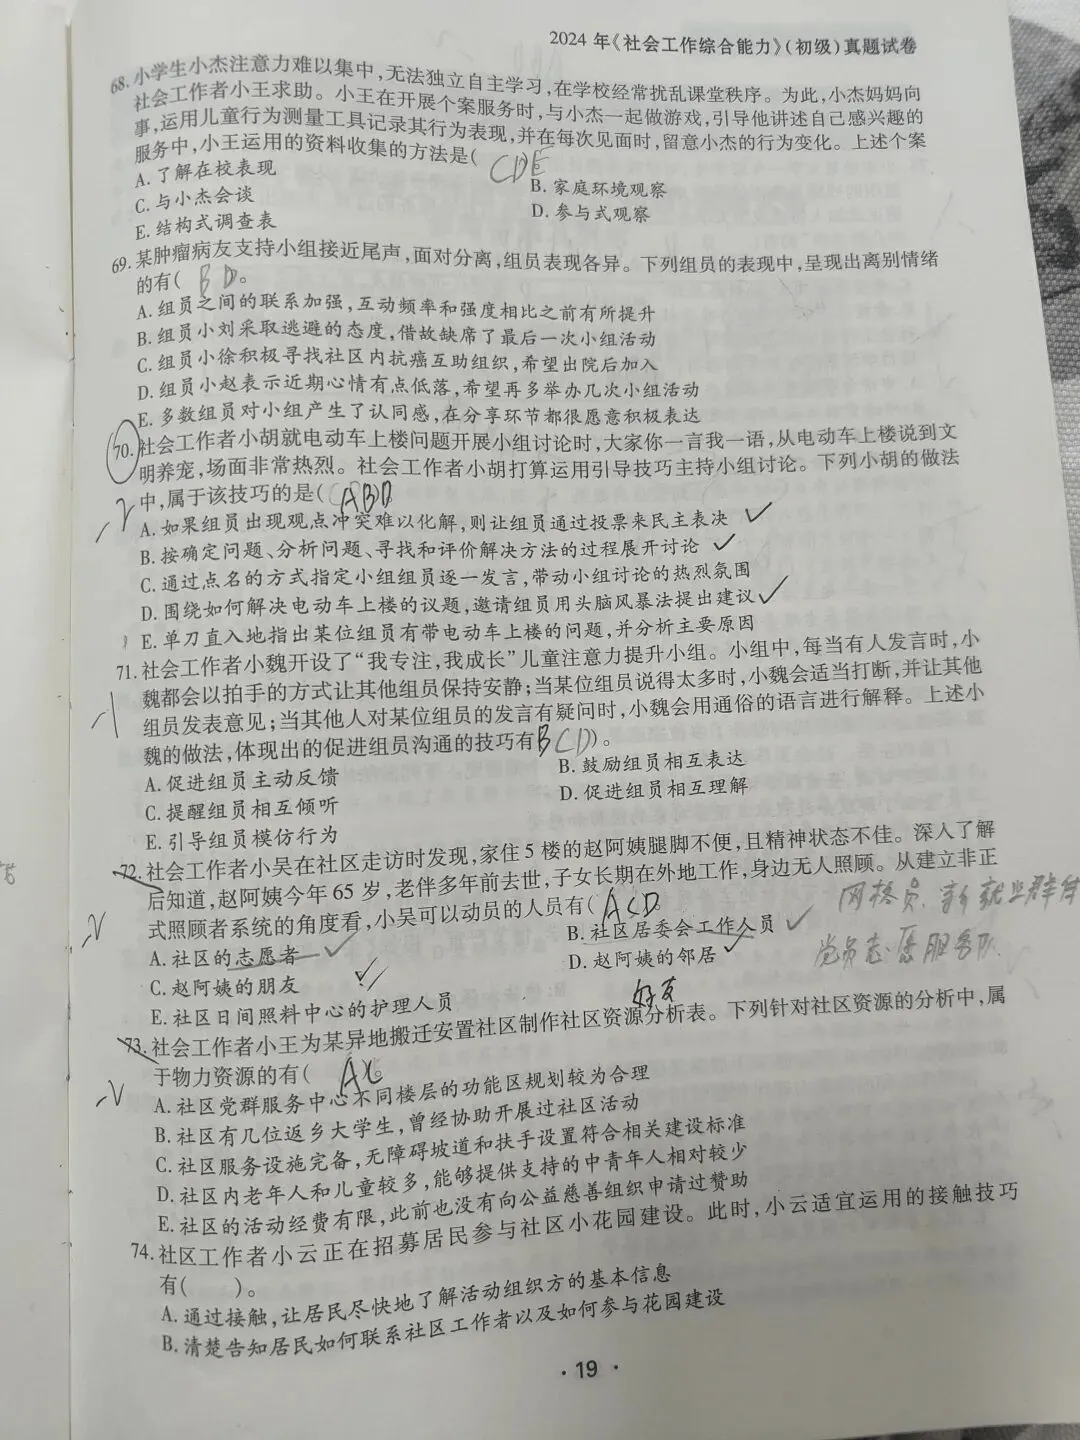 2024年《社会工作综合能力》(初级)真题试卷
68.小学生小杰注意力难以集中,无法独立自主学习,在学校经常扰乱课堂秩序。为此,小杰妈妈向
社会工作者小王求助。小王在开展个案服务时,与小杰一起做游戏,引导他讲述自己感兴趣的
事,运用儿童行为测量工具记录其行为表现,并在每次见面时,留意小杰的行为变化。上述个案
服务中,小王运用的资料收集的方法是( CDE
A.了解在校表现
B.家庭环境观察
C.与小杰会谈
D.参与式观察
E.结构式调查表
69.某肿瘤病友支持小组接近尾声,面对分离,组员表现各异。下列组员的表现中,呈现出离别情绪
的有( BD 。
A.组员之间的联系加强,互动频率和强度相比之前有所提升
B.组员小刘采取逃避的态度,借故缺席了最后一次小组活动
C.组员小徐积极寻找社区内抗癌互助组织,希望出院后加入
D.组员小赵表示近期心情有点低落,希望再多举办几次小组活动
E.多数组员对小组产生了认同感,在分享环节都很愿意积极表达
70.社会工作者小胡就电动车上楼问题开展小组讨论时,大家你一言我一语,从电动车上楼说到文
明养宠,场面非常热烈。社会工作者小胡打算运用引导技巧主持小组讨论。下列小胡的做法
中,属于该技巧的是( ABD
-2
A.如果组员出现观点冲突难以化解,则让组员通过投票来民主表决 ✓
B.按确定问题、分析问题、寻找和评价解决方法的过程展开讨论 ✓
C.通过点名的方式指定小组组员逐一发言,带动小组讨论的热烈氛围
D.围绕如何解决电动车上楼的议题,邀请组员用头脑风暴法提出建议 ✓
E.单刀直入地指出某位组员有带电动车上楼的问题,并分析主要原因
71.社会工作者小魏开设了“我专注,我成长”儿童注意力提升小组。小组中,每当有人发言时,小
魏都会以拍手的方式让其他组员保持安静;当某位组员说得太多时,小魏会适当打断,并让其他
-1
组员发表意见;当其他人对某位组员的发言有疑问时,小魏会用通俗的语言进行解释。上述小
魏的做法,体现出的促进组员沟通的技巧有 BCD )。
A.促进组员主动反馈
B.鼓励组员相互表达
C.提醒组员相互倾听
D.促进组员相互理解
E.引导组员模仿行为
72.社会工作者小吴在社区走访时发现,家住5楼的赵阿姨腿脚不便,且精神状态不佳。深人了解
后知道,赵阿姨今年65岁,老伴多年前去世,子女长期在外地工作,身边无人照顾。从建立非正
式照顾者系统的角度看,小吴可以动员的人员有( ACD 。
网格员、新就业群体
-2
A.社区的志愿者 ✓
B.社区居委会工作人员 ✓
党员志愿服务队
C.赵阿姨的朋友 ✓
D.赵阿姨的邻居 ✓
E.社区日间照料中心的护理人员
好友
73.社会工作者小王为某异地搬迁安置社区制作社区资源分析表。下列针对社区资源的分析中,属
于物力资源的有( AC 。
-2
A.社区党群服务中心不同楼层的功能区规划较为合理
B.社区有几位返乡大学生,曾经协助开展过社区活动
C.社区服务设施完备,无障碍坡道和扶手设置符合相关建设标准
D.社区内老年人和儿童较多,能够提供支持的中青年人相对较少
E.社区的活动经费有限,此前也没有向公益慈善组织申请过赞助
74.社区工作者小云正在招募居民参与社区小花园建设。此时,小云适宜运用的接触技巧
有( )。
A.通过接触,让居民尽快地了解活动组织方的基本信息
B.清楚告知居民如何联系社区工作者以及如何参与花园建设
· 19 ·